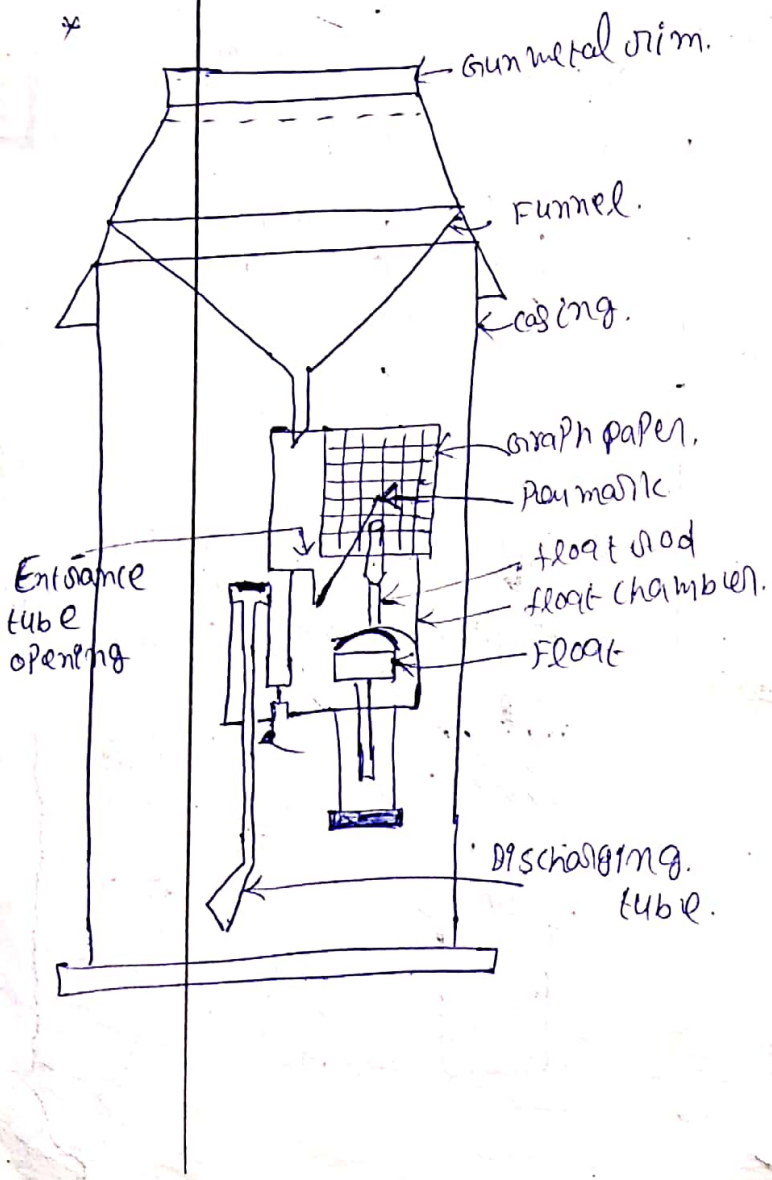 *
Gunmetal rim.
Funnel.
casing.
Graph paper.
Pen mark
float rod
float chamber.
Float
Entrance
tube
opening
Discharging.
tube.